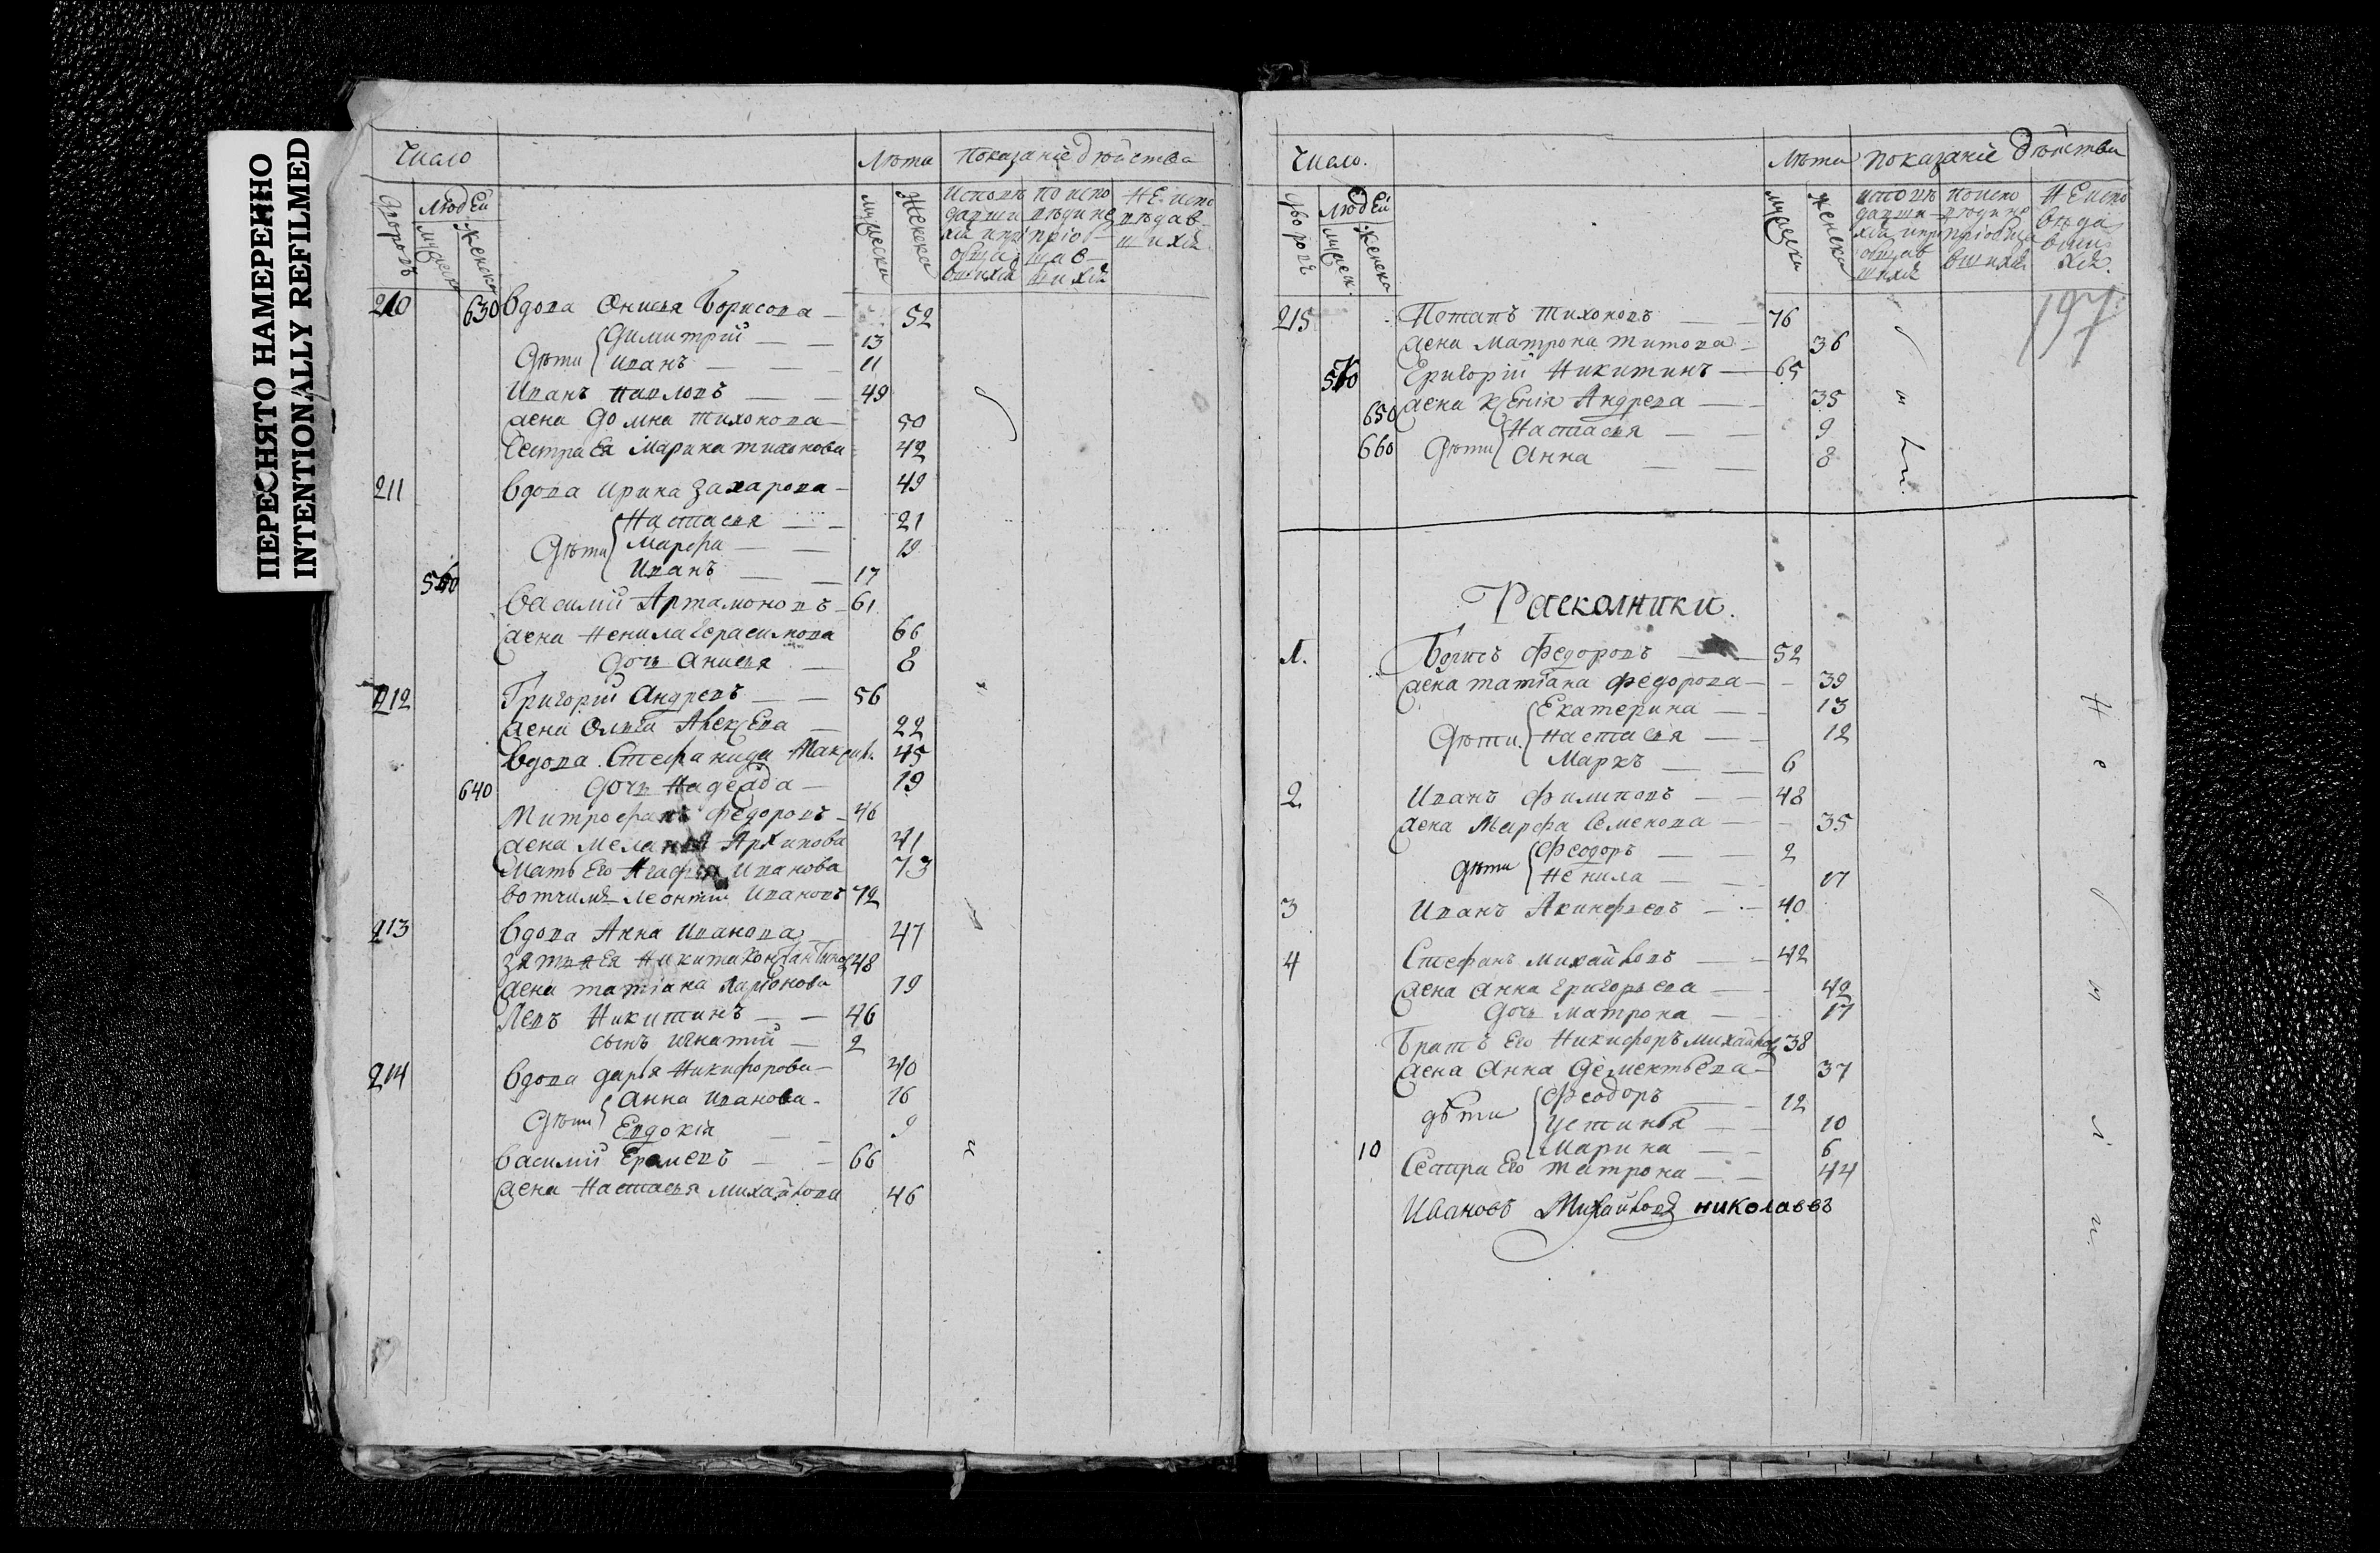 ПЕРЕСНЯТО НАМЕРЕННО
INTENTIONALLY REFILMED
Число Лѣта показаніе дѣйства
дворовъ людей мужеска женска мужеска женска
Исповѣдавшихся и приобщавшихся
по исповѣди не приобщавшихся
не исповѣдавшихся
210 630 Вдова Онисья Борисова — 52
Дѣти { Димитрій — — 13
Иванъ — — 11
Иванъ Павловъ — — 49
жена Домна Тихонова — 50
Сестра Ея Марина Тихонова 42
211 Вдова Ирина Захарова — 49
Дѣти { Настасья — — 21
Марфа — — 19
Иванъ — — 17
540
Василій Артамоновъ — 61
жена Ненила Герасимова 66
дочь Анисья — 8
212 Григорій Андревъ — — 56
жена Ольга Алексѣева — 22
Вдова Стефанида Максим. 45
640 дочь Надежда — 19
Митрофанъ Федоровъ — 46
жена Меланья Архипова 41
Мать Его Агафья Иванова 73
вотчимъ Леонтій Ивановъ 72
213 Вдова Анна Иванова 47
зять Ея Никита Константинов 48
жена Татіана Ларіонова 19
Левъ Никитинъ — — 46
сынъ Игнатій — 2
214 Вдова Дарья Никифорова — 40
Дѣти { Анна Иванова — 16
Евдокія — — 9
Василій Еремевъ — — 66
жена Настасья Михайлова 46
Число. Лѣта показаніе дѣйства
дворовъ людей мужеск. женска мужеска женска
исповѣдавшихся и приобщавшихся
по исповѣди не приобщавшихся
не исповѣдавшихся
197
215 Потапъ Тихоновъ — — 76
жена Матрона Титова — 36
550 Григорій Никитинъ — 65
650 жена Ксенія Андрева — — 35
660 Дѣти { Настасья — — 9
Анна — — 8
Расколники.
1. Борисъ Федоровъ — — 52
жена Татіана Федорова — — 39
Дѣти. { Екатерина — — 13
Настасья — — 12
Маркъ — — 6
2 Иванъ Филиповъ — — 48
жена Марфа Семенова — — 35
Дѣти { Феодоръ — — 2
Ненила — — 17
3 Иванъ Акинфьевъ — — 40
4 Стефанъ Михайловъ — — 42
жена Анна Григорьева — — 42
дочь Матрона — — 17
Братъ Его Никифоръ Михайлов 38
жена Анна Дементьева — 37
дѣти { Феодоръ — — 12
Устинья — — 10
10 Марина — — 6
Сестра Его Матрона — — 44
Ивановъ Михайловъ николаевъ
Не были